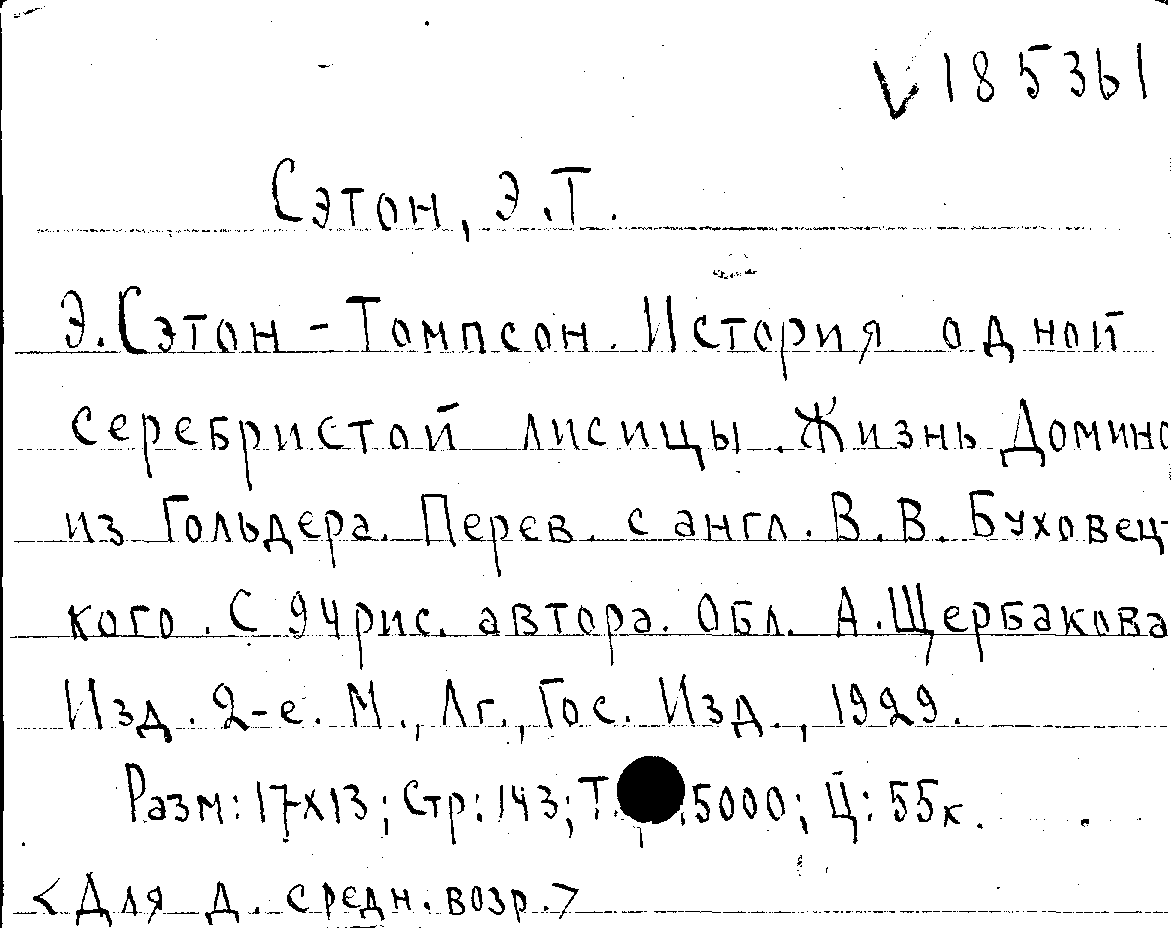 V 185361
Сэтон, Э.Т.
Э. Сэтон - Томпсон. История одной
серебристой лисицы. Жизнь Домино
из Гольдера. Перев. с англ. В. В. Буховец-
кого. С 94 рис. автора. Обл. А. Щербакова
Изд. 2-е. М., Лг., Гос. Изд., 1929.
Разм: 17x13; Стр: 143; Т. 5000; Ц: 55к.
<Для д. средн. возр.>